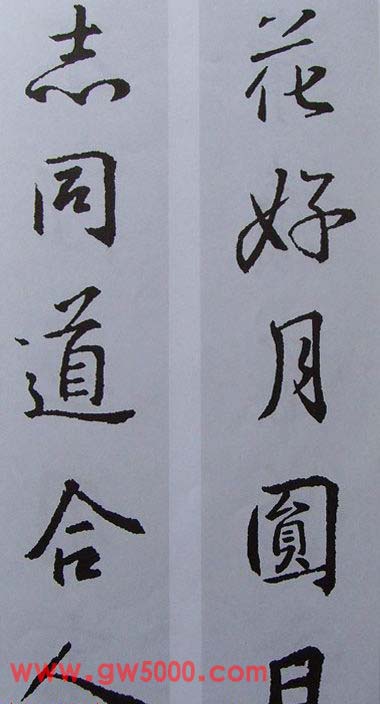 花好月圓日
志同道合人
www.gw5000.com